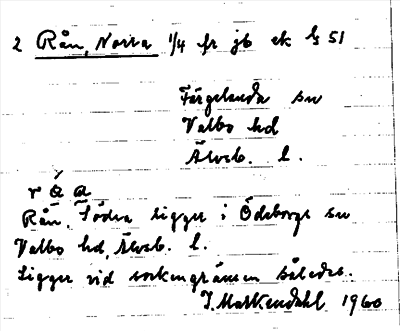 2 Rån, Norra 1/4 fr jb ek ls 51
Färgelanda sn
Valbo hd
Älvsb. l.
r å a
Rån, Södra ligger i Ödeborgs sn
Valbo hd, Älvsb. l.
Ligger vid sockengränsen således.
J. Markendahl 1960